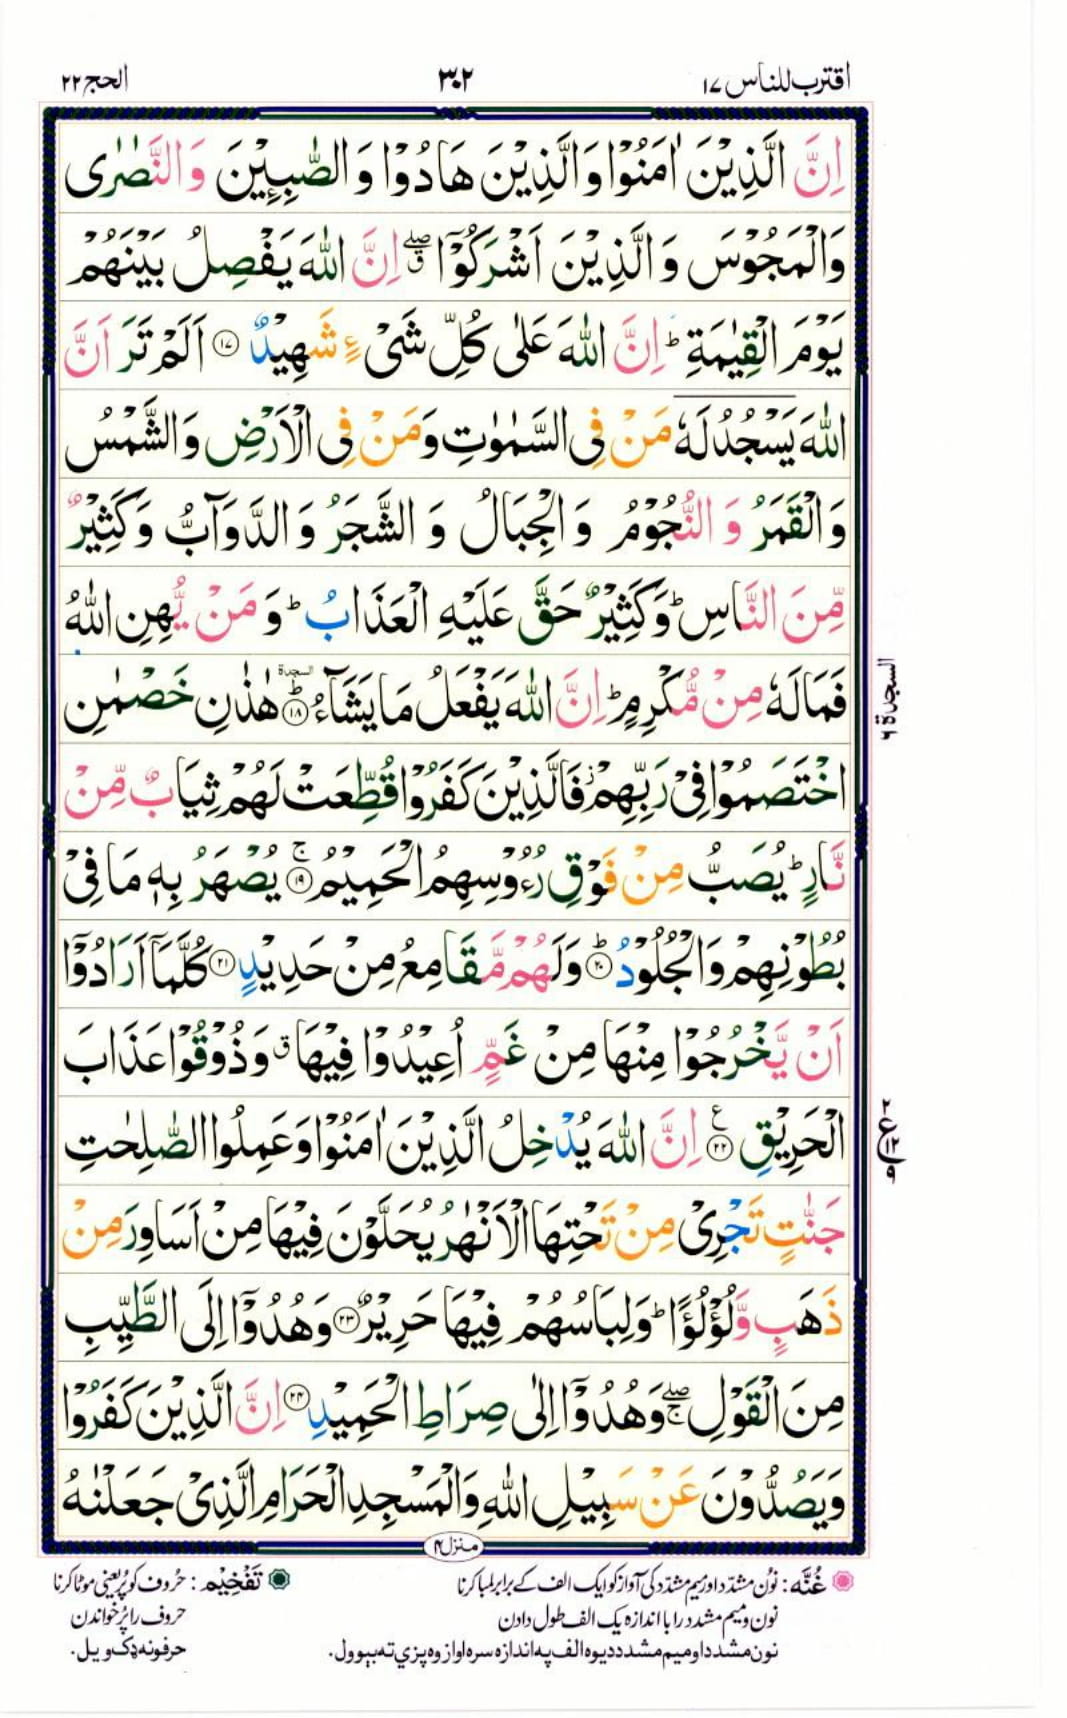 اقترب للناس ۱۷
۳۰۲
الحج ۲۲
اِنَّ الَّذِيْنَ اٰمَنُوْا وَالَّذِيْنَ هَادُوْا وَالصّٰبِـِٕيْنَ وَالنَّصٰرٰى
وَالْمَجُوْسَ وَالَّذِيْنَ اَشْرَكُوْۤا ۖۗ اِنَّ اللّٰهَ يَفْصِلُ بَيْنَهُمْ
يَوْمَ الْقِيٰمَةِ ؕ اِنَّ اللّٰهَ عَلٰى كُلِّ شَىْءٍ شَهِيْدٌ ۝۱۷ اَلَمْ تَرَ اَنَّ
اللّٰهَ يَسْجُدُ لَهٗ مَنْ فِى السَّمٰوٰتِ وَمَنْ فِى الْاَرْضِ وَالشَّمْسُ
وَالْقَمَرُ وَالنُّجُوْمُ وَالْجِبَالُ وَالشَّجَرُ وَالدَّوَآبُّ وَكَثِيْرٌ
مِّنَ النَّاسِ ؕ وَكَثِيْرٌ حَقَّ عَلَيْهِ الْعَذَابُ ؕ وَمَنْ يُّهِنِ اللّٰهُ
فَمَا لَهٗ مِنْ مُّكْرِمٍ ؕ اِنَّ اللّٰهَ يَفْعَلُ مَا يَشَآءُ ۝۱۸ؕ السجدة هٰذٰنِ خَصْمٰنِ
السجدة ۶
اخْتَصَمُوْا فِىْ رَبِّهِمْ ز فَالَّذِيْنَ كَفَرُوْا قُطِّعَتْ لَهُمْ ثِيَابٌ مِّنْ
نَّارٍ ؕ يُصَبُّ مِنْ فَوْقِ رُءُوْسِهِمُ الْحَمِيْمُ ۝۱۹ۚ يُصْهَرُ بِهٖ مَا فِىْ
بُطُوْنِهِمْ وَالْجُلُوْدُ ۝۲۰ؕ وَلَهُمْ مَّقَامِعُ مِنْ حَدِيْدٍ ۝۲۱ كُلَّمَاۤ اَرَادُوْۤا
اَنْ يَّخْرُجُوْا مِنْهَا مِنْ غَمٍّ اُعِيْدُوْا فِيْهَا ق وَذُوْقُوْا عَذَابَ
الْحَرِيْقِ ۝۲۲ ع اِنَّ اللّٰهَ يُدْخِلُ الَّذِيْنَ اٰمَنُوْا وَعَمِلُوا الصّٰلِحٰتِ
۲
ع۱۲
۹
جَنّٰتٍ تَجْرِىْ مِنْ تَحْتِهَا الْاَنْهٰرُ يُحَلَّوْنَ فِيْهَا مِنْ اَسَاوِرَ مِنْ
ذَهَبٍ وَّلُؤْلُؤًا ؕ وَلِبَاسُهُمْ فِيْهَا حَرِيْرٌ ۝۲۳ وَهُدُوْۤا اِلَى الطَّيِّبِ
مِنَ الْقَوْلِ ۖۚ وَهُدُوْۤا اِلٰى صِرَاطِ الْحَمِيْدِ ۝۲۴ اِنَّ الَّذِيْنَ كَفَرُوْا
وَيَصُدُّوْنَ عَنْ سَبِيْلِ اللّٰهِ وَالْمَسْجِدِ الْحَرَامِ الَّذِىْ جَعَلْنٰهُ
منزل ۴
غُنَّه: نوُن مشدّد اور میم مشدّد کی آواز کو ایک الف کے برابر لمبا کرنا
نون و میم مشدد را با اندازہ یک الف طول دادن
نون مشدد او میم مشدد د یوہ الف پہ اندازہ سرہ اواز وہ پزي تہ بېوول.
تَفْخِيْم: حرُوف کو پُر یعنی موٹا کرنا
حروف را پُر خواندن
حرفونه ډک ویل.